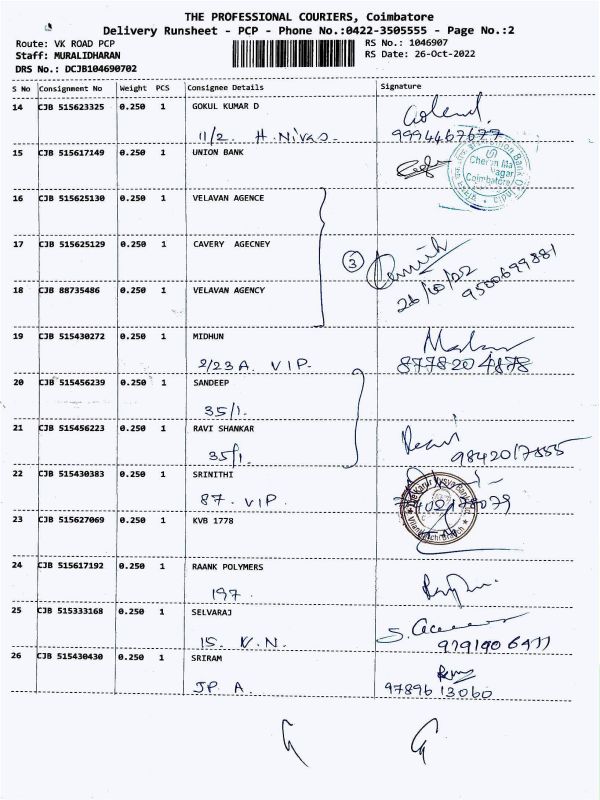 THE PROFESSIONAL COURIERS, Coimbatore
Delivery Runsheet - PCP - Phone No.:0422-3505555 - Page No.:2
Route: VK ROAD PCP
RS No.: 1046907
Staff: MURALIDHARAN
RS Date: 26-Oct-2022
DRS No.: DCJB104690702
S No Consignment No Weight PCS Consignee Details Signature
14 CJB 515623325 0.250 1 GOKUL KUMAR D
11/2. H.Nivas. 9994467677
15 CJB 515617149 0.250 1 UNION BANK
16 CJB 515625130 0.250 1 VELAVAN AGENCE
17 CJB 515625129 0.250 1 CAVERY AGECNEY
3
26/10/22
9500699881
18 CJB 88735486 0.250 1 VELAVAN AGENCY
19 CJB 515430272 0.250 1 MIDHUN
2/23A. VIP. 8778204878
20 CJB 515456239 0.250 1 SANDEEP
35/1.
21 CJB 515456223 0.250 1 RAVI SHANKAR
35/1. 9842017555
22 CJB 515430383 0.250 1 SRINITHI
87. VIP.
23 CJB 515627069 0.250 1 KVB 1778
24 CJB 515617192 0.250 1 RAANK POLYMERS
197.
25 CJB 515333168 0.250 1 SELVARAJ
15. K.N.
26 CJB 515430430 0.250 1 SRIRAM
JP. A. 9789613060